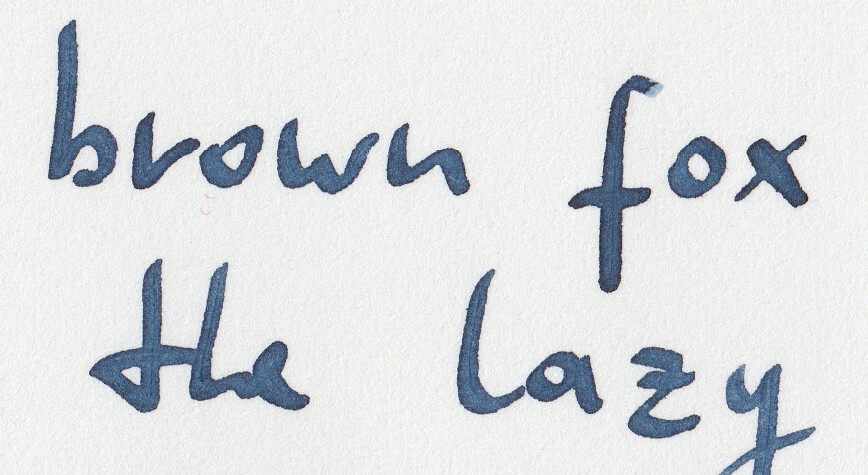 brown fox
the lazy